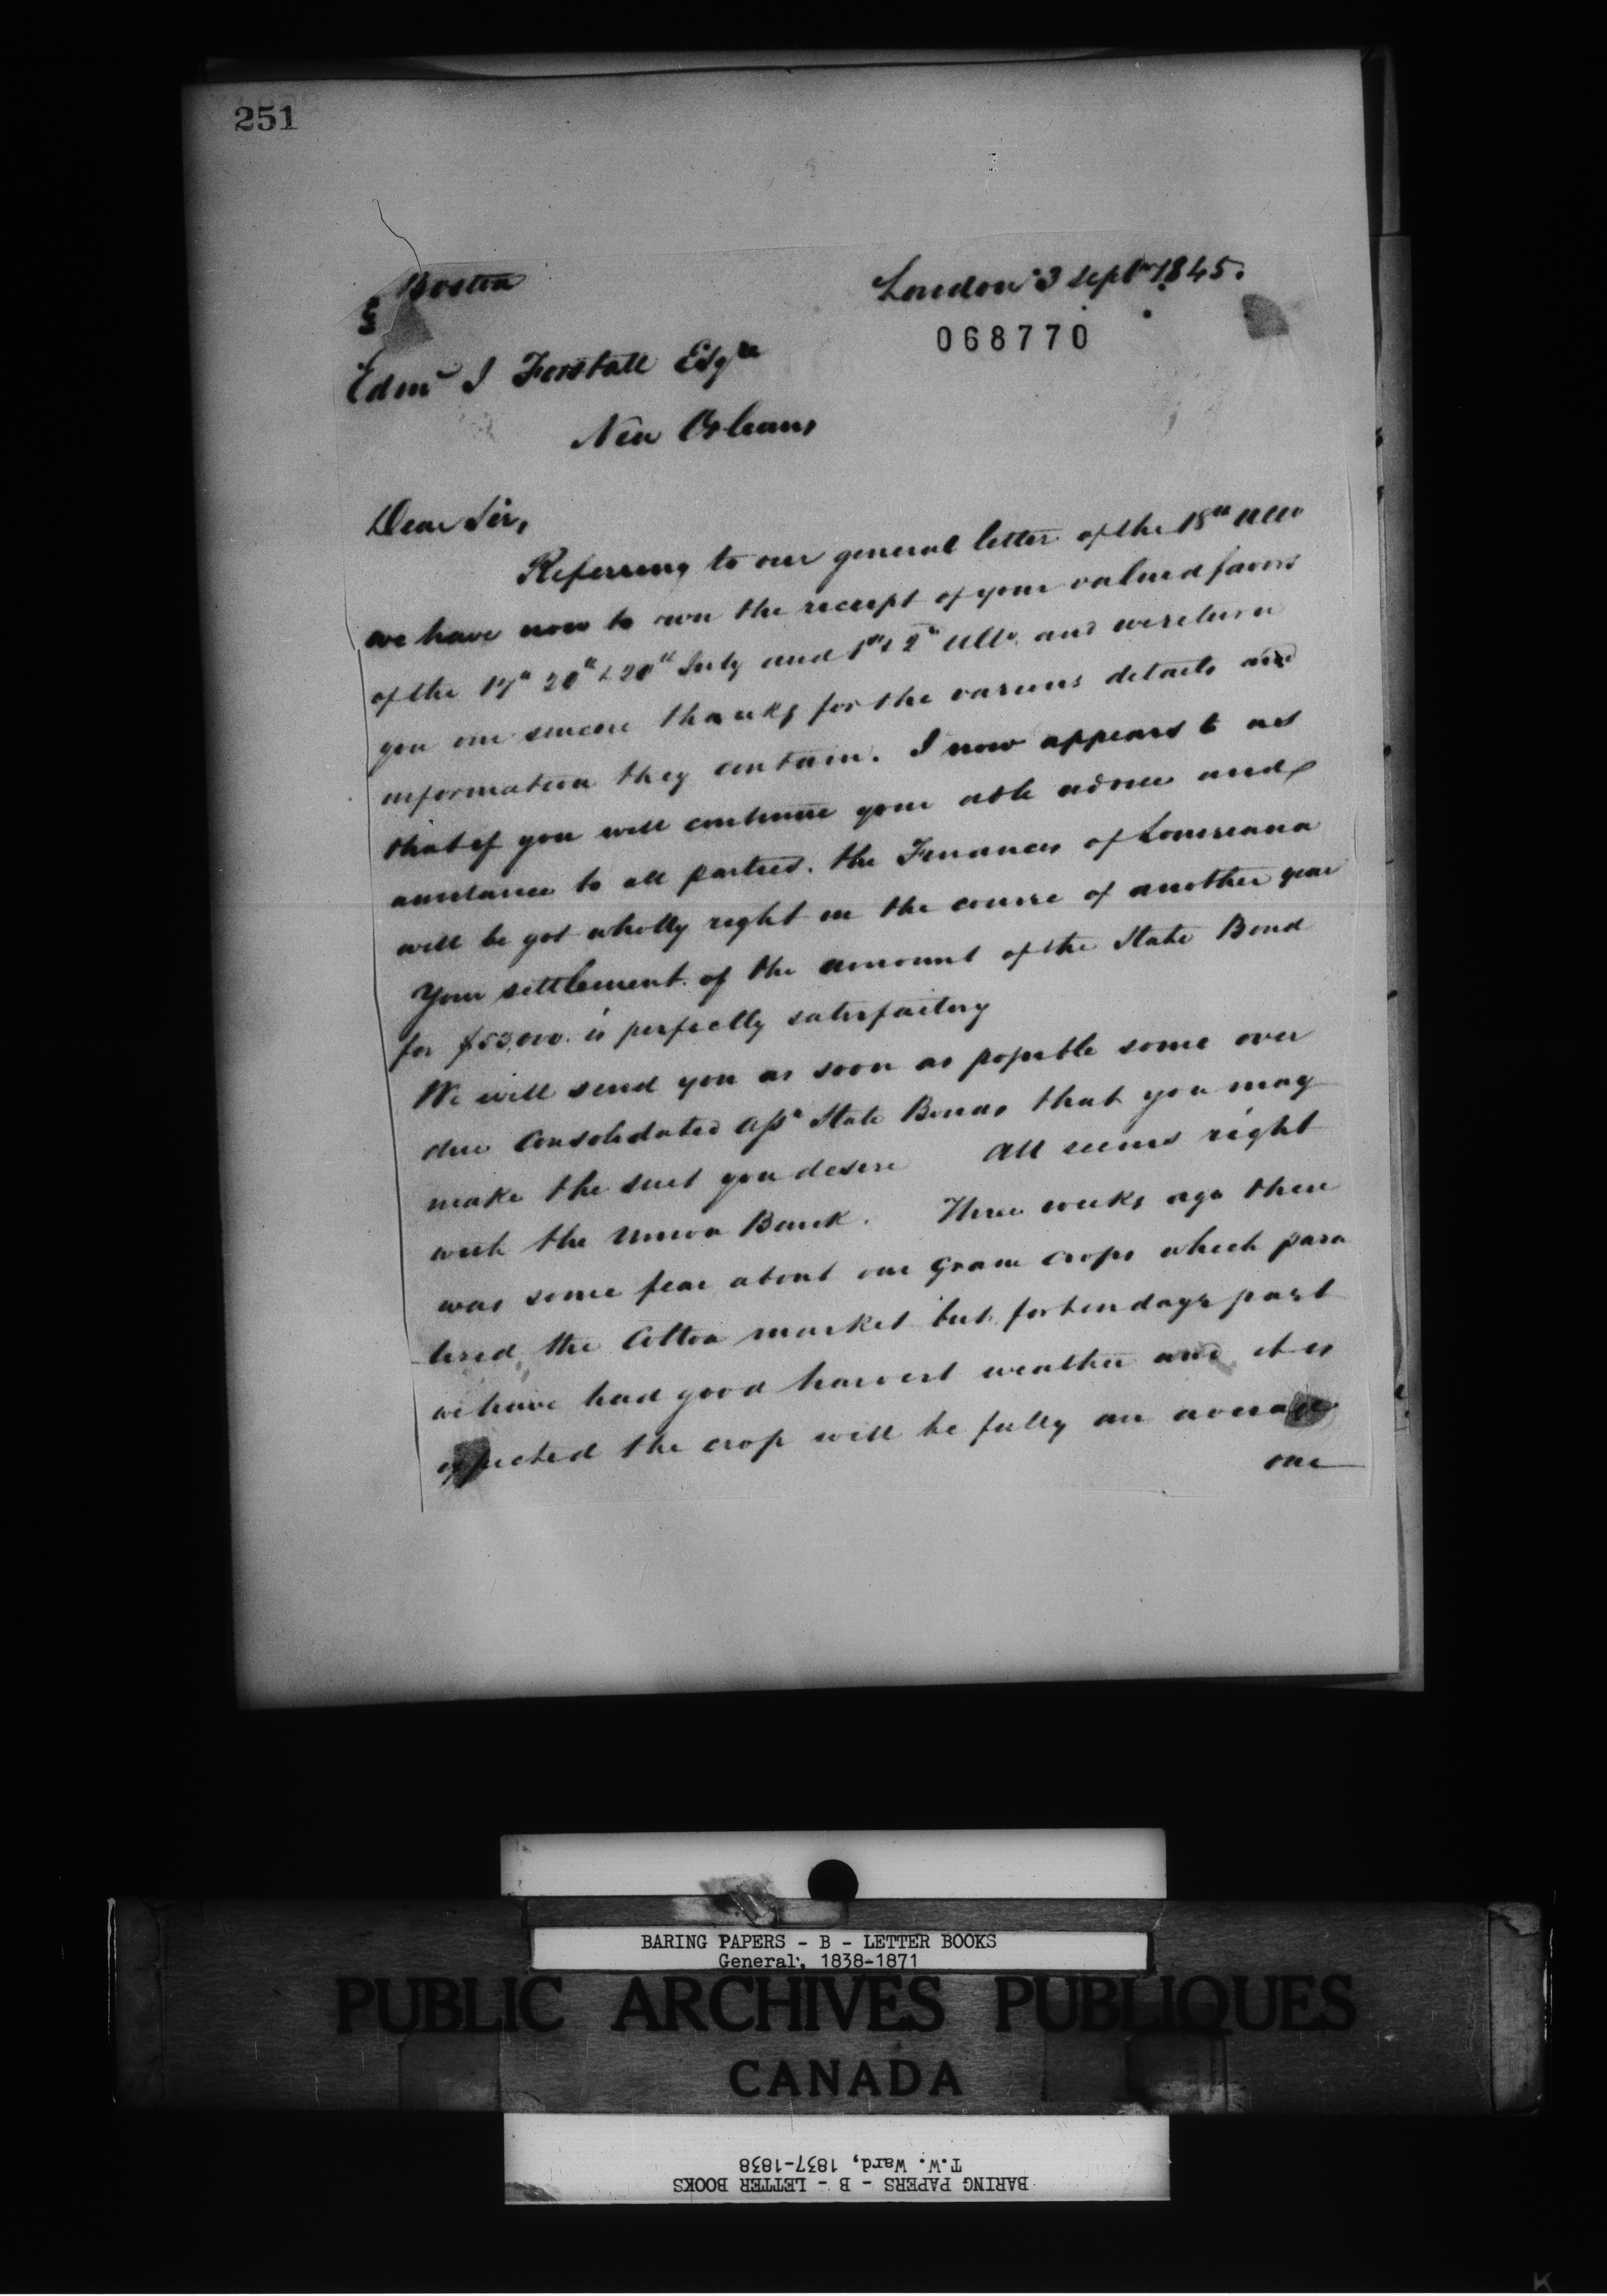 251
Boston
London 3 Septr 1845.
068770
Edmd J Forstall Esqre
New Orleans
Dear Sir,
Referring to our general letter of the 18th Ulto
we have now to own the receipt of your valued favors
of the 17th 20th & 20th July and 1st & 2nd Ulto. and we return
you our sincere thanks for the various details and
information they contain. I now appears to us
that if you will continue your able advice and
assistance to all parties. the Finances of Louisiana
will be got wholly right in the course of another year
Your settlement of the amount of the State Bond
for is perfectly satisfactory
We will send you as soon as possible some over
due Consolidated Assn State Bonds that you may
make the suit you desire All seems right
with the Union Bank. Three weeks ago there
was some fear about our grain crops which para
lised the Cotton market but for ten days past
we have had good harvest weather and it is
expected the crop will be fully an average
one
BARING PAPERS - B - LETTER BOOKS
General, 1838-1871
PUBLIC ARCHIVES PUBLIQUES
CANADA
BARING PAPERS - B - LETTER BOOKS
T.W. Ward, 1837-1838
K